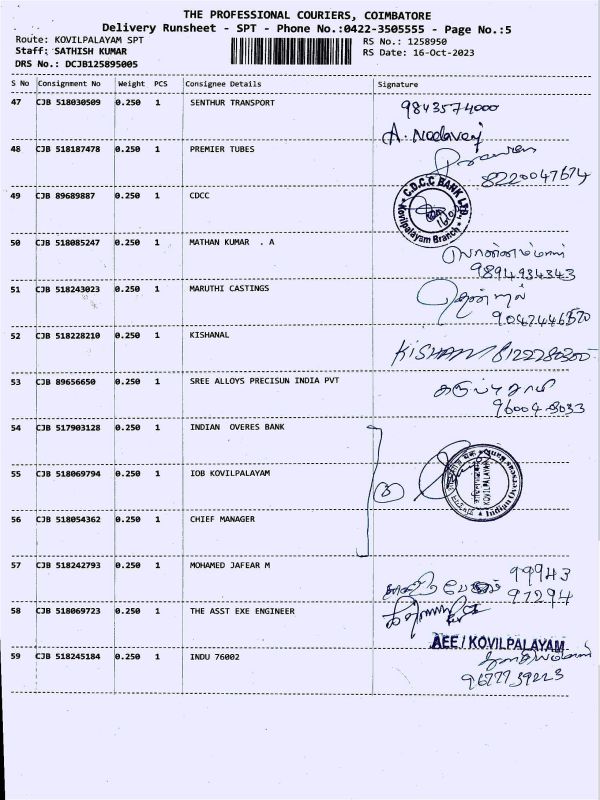 THE PROFESSIONAL COURIERS, COIMBATORE
Delivery Runsheet - SPT - Phone No.:0422-3505555 - Page No.:5
Route: KOVILPALAYAM SPT
RS No.: 1258950
Staff: SATHISH KUMAR
RS Date: 16-Oct-2023
DRS No.: DCJB125895005
S No Consignment No Weight PCS Consignee Details Signature
47 CJB 518030509 0.250 1 SENTHUR TRANSPORT 9843574000
48 CJB 518187478 0.250 1 PREMIER TUBES
8220047674
49 CJB 89689887 0.250 1 CDCC
C.D.C.C BANK LTD
Kovilpalayam Branch
50 CJB 518085247 0.250 1 MATHAN KUMAR . A
9894934343
51 CJB 518243023 0.250 1 MARUTHI CASTINGS
52 CJB 518228210 0.250 1 KISHANAL
KISHAN
53 CJB 89656650 0.250 1 SREE ALLOYS PRECISUN INDIA PVT
கருப்பசாமி
54 CJB 517903128 0.250 1 INDIAN OVERES BANK
55 CJB 518069794 0.250 1 IOB KOVILPALAYAM
3
KOVILPALAYAM
Indian Overseas Bank
56 CJB 518054362 0.250 1 CHIEF MANAGER
57 CJB 518242793 0.250 1 MOHAMED JAFEAR M
99943
97294
58 CJB 518069723 0.250 1 THE ASST EXE ENGINEER
AEE / KOVILPALAYAM
59 CJB 518245184 0.250 1 INDU 76002